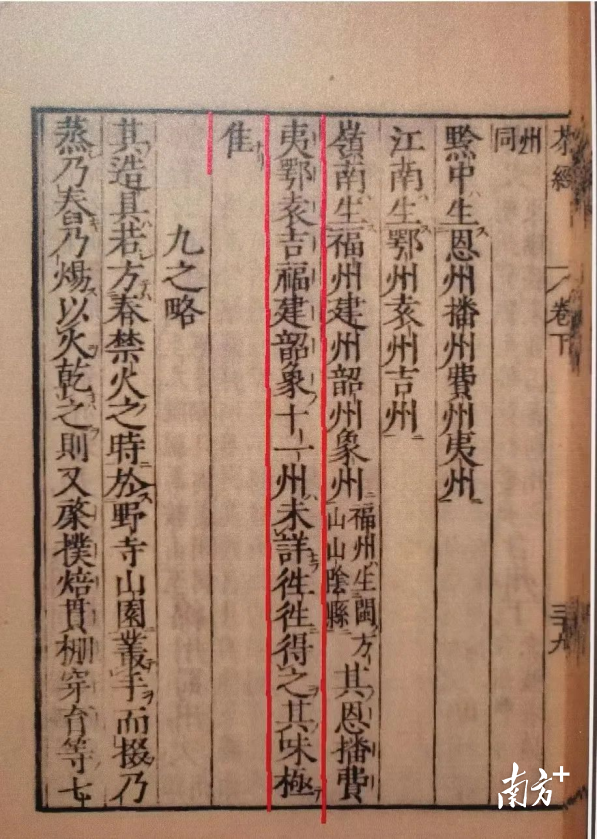 茶經
卷下
州同
黔中生恩州播州費州夷州
江南生鄂州袁州吉州
嶺南生福州建州韶州象州福州生閩方山山陰縣其恩播費
夷鄂袁吉福建韶象十一州未詳徃徃得之其味極
佳
九之略
其造具若方春禁火之時於野寺山園叢手而掇乃
蒸乃舂乃煬以火乾之則又棨撲焙貫棚穿育等七
南方+